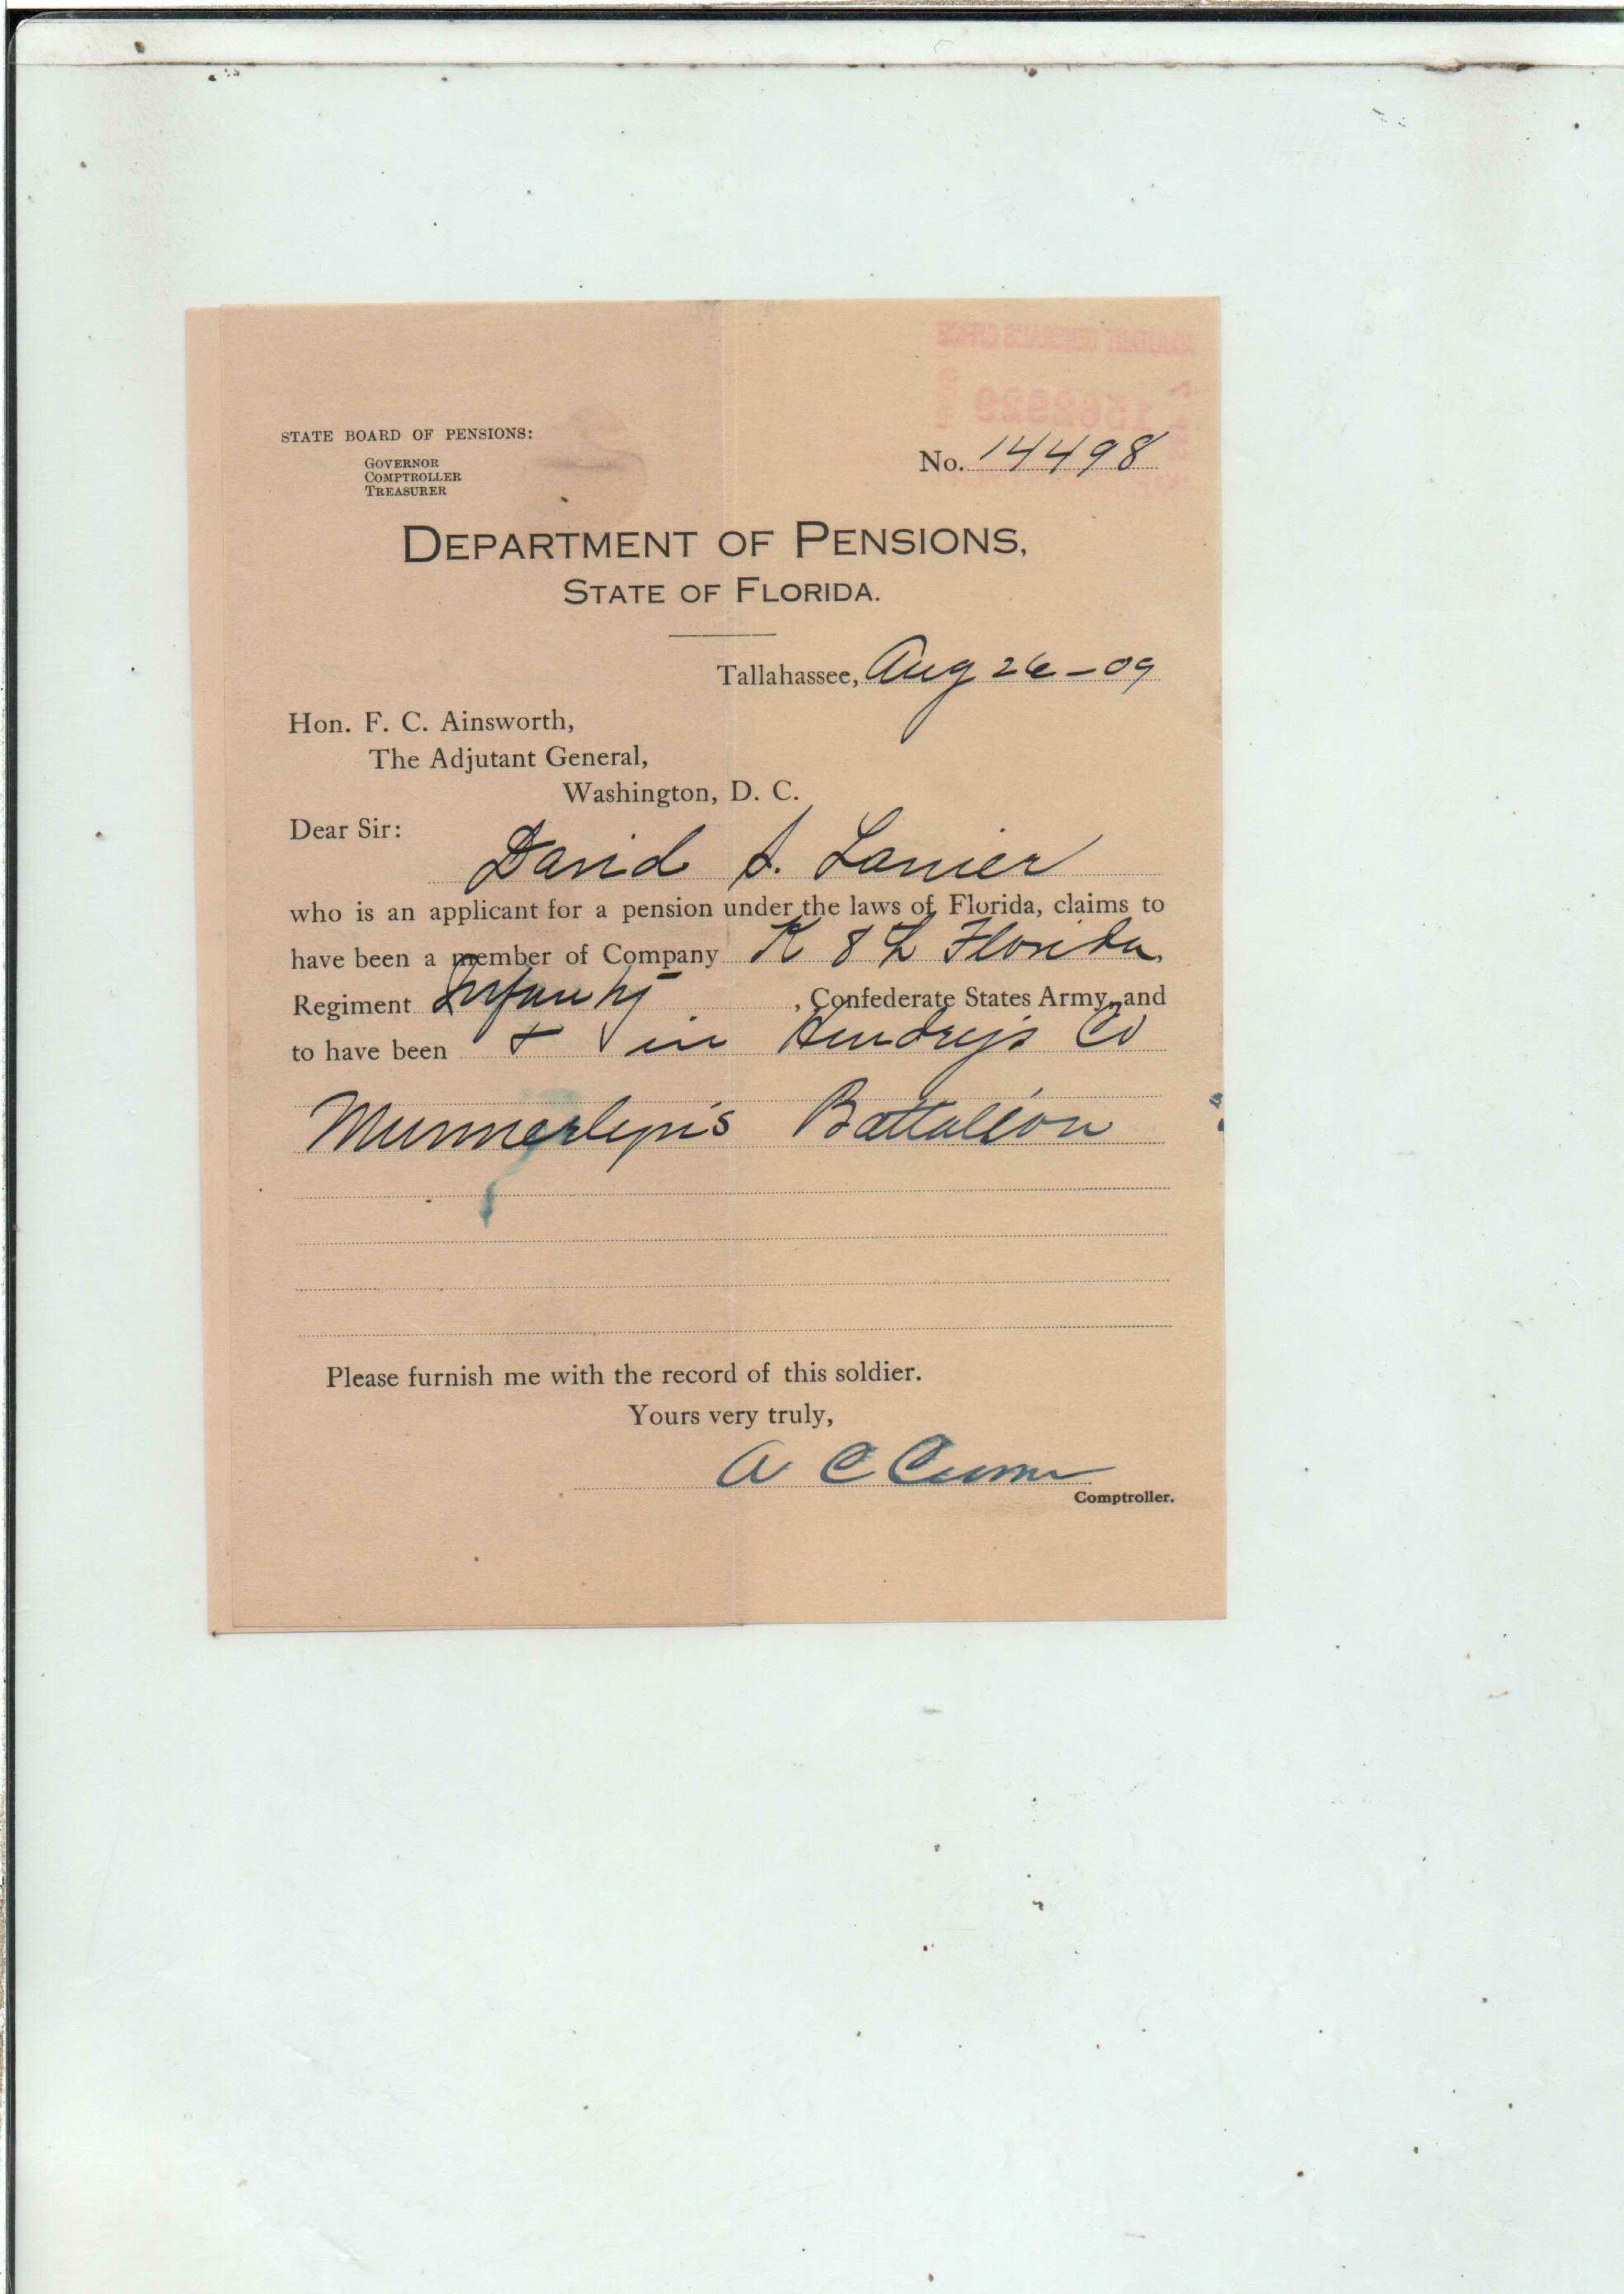 STATE BOARD OF PENSIONS:
GOVERNOR
COMPTROLLER
TREASURER
No. 14498
DEPARTMENT OF PENSIONS,
STATE OF FLORIDA.
Tallahassee, Aug 26-09
Hon. F. C. Ainsworth,
The Adjutant General,
Washington, D. C.
Dear Sir:
David S. Lanier
who is an applicant for a pension under the laws of Florida, claims to
have been a member of Company K 8th Florida
Regiment Infantry, Confederate States Army, and
to have been & in Hendry's Co
Munnerlyn's Battalion
Please furnish me with the record of this soldier.
Yours very truly,
A C Croom
Comptroller.